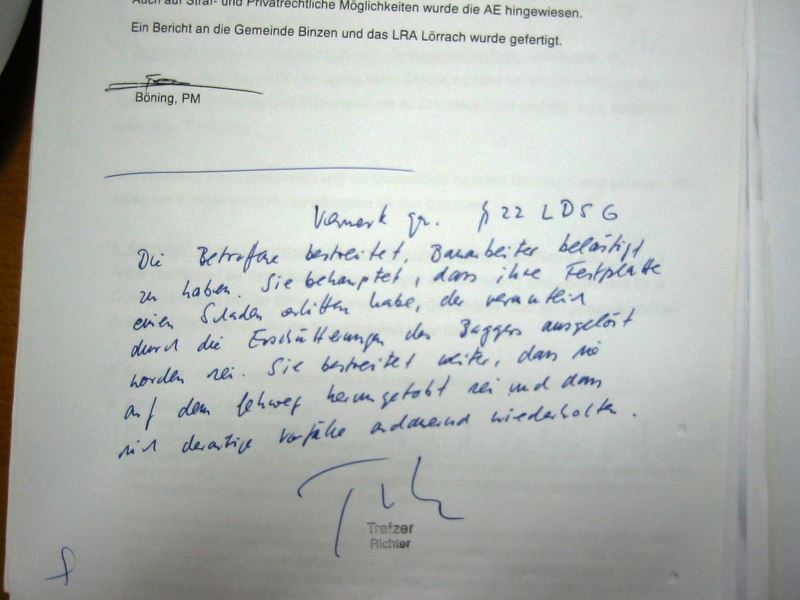 Auch auf Straf- und Privatrechtliche Möglichkeiten wurde die AE hingewiesen.
Ein Bericht an die Gemeinde Binzen und das LRA Lörrach wurde gefertigt.
Böning, PM
Vermerk gem. § 22 LDSG
Die Betroffene bestreitet, Bauarbeiter belästigt
zu haben. Sie behauptet, dass ihre Festplatte
einen Schaden erlitten habe, der vermutlich
durch die Erschütterungen des Baggers ausgelöst
worden sei. Sie bestreitet weiter, dass sie
auf dem Gehweg herumgetobt sei und dass
sich derartige Vorfälle andauernd wiederholten.
Trefzer
Richter